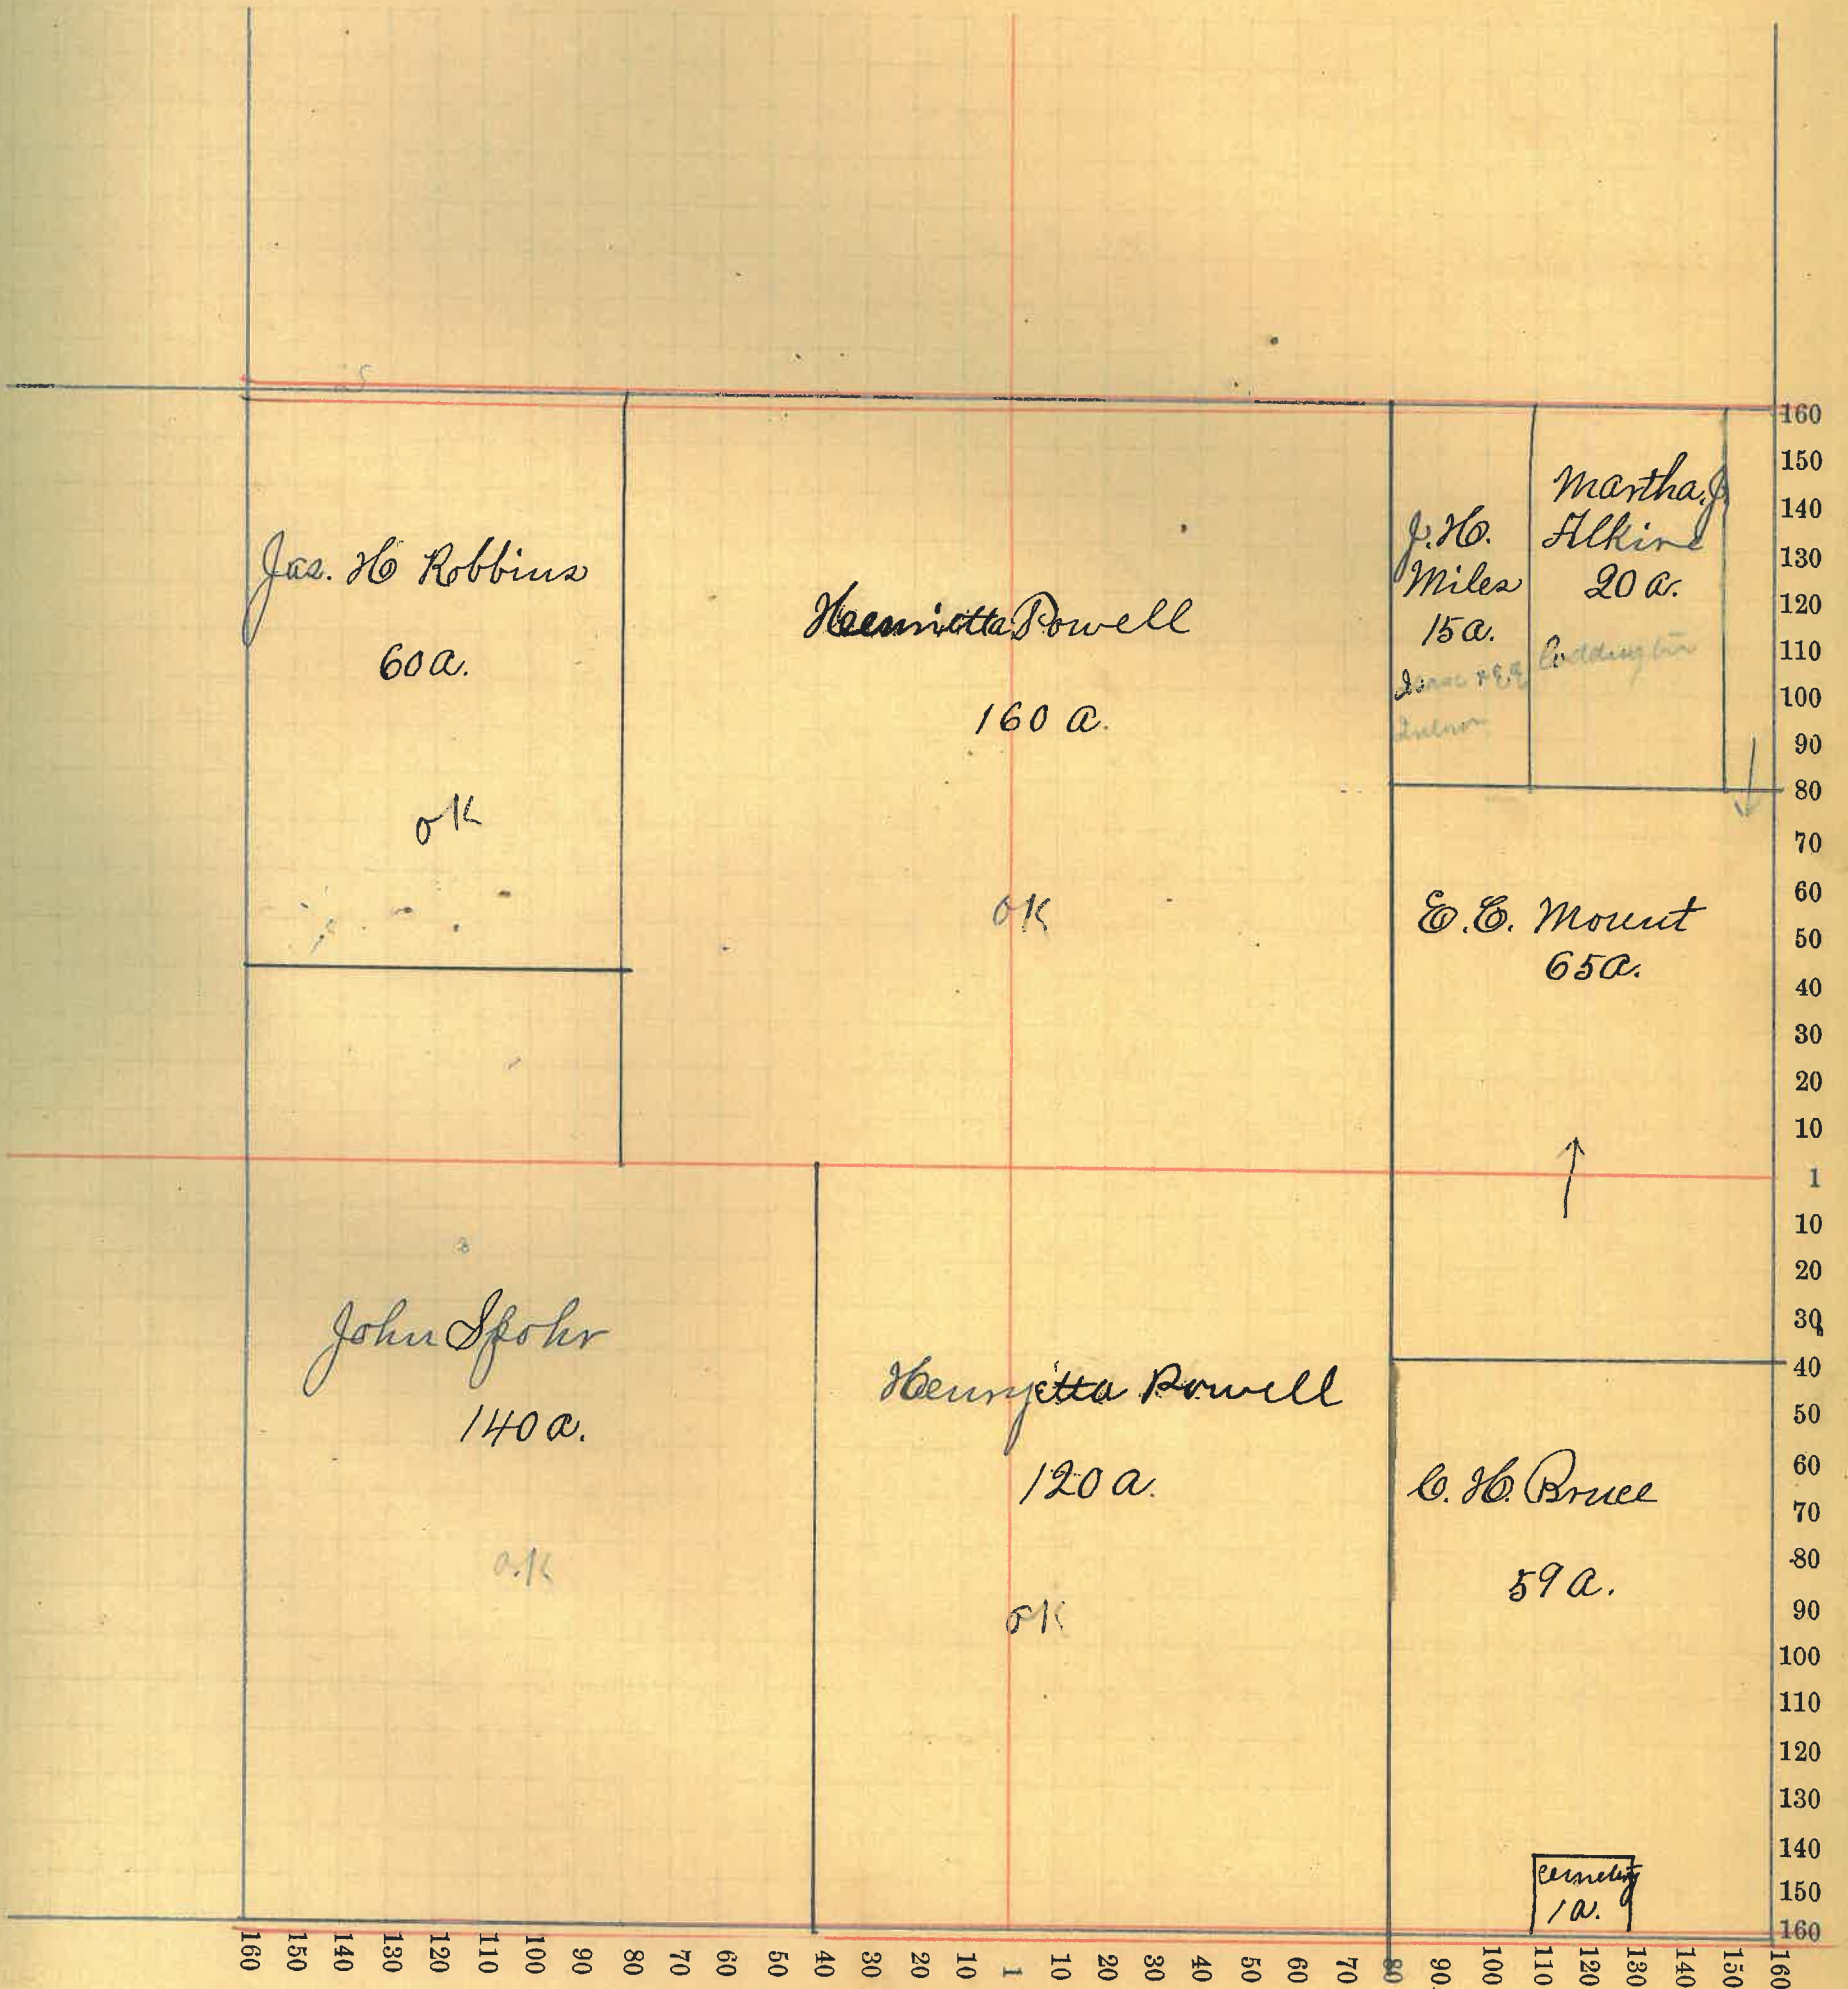 Jas. H Robbins
60 a.
OK
Henrietta Powell
160 a.
OK
J. H.
Miles
15 a.
Martha J.
Alkire
20 a.
Coddington
E. C. Mount
65 a.
John Spohr
140 a.
O.K
Henrietta Powell
120 a.
OK
C. H. Bruce
59 a.
cemetery
1 a.
160
150
140
130
120
110
100
90
80
70
60
50
40
30
20
10
1
10
20
30
40
50
60
70
80
90
100
110
120
130
140
150
160
160 150 140 130 120 110 100 90 80 70 60 50 40 30 20 10 1 10 20 30 40 50 60 70 80 90 100 110 120 130 140 150 160